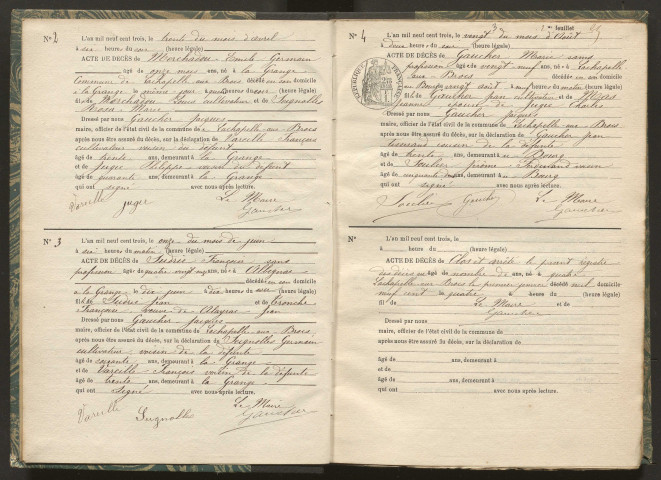 N° 2
L'an mil neuf cent trois, le trente du mois d'avril
à six heures du soir (heure légale)
ACTE DE DÉCÈS de Marchadou Emile Germain
âgé de onze mois ans, né à la Grange
Commune de Lachapelle aux Brocs décédé en son domicile
à la Grange le même jour à heures du soir (heure légale)
fils de Marchadou Louis cultivateur et de Sugnolle
Marie
Dressé par nous Gaucher Jacques
maire, officier de l'état civil de la commune de Lachapelle aux Brocs
après nous être assuré du décès, sur la déclaration de Vareille François
cultivateur voisin du défunt
âgé de trente ans, demeurant à la Grange
et de Juger Philippe voisin du défunt
âgé de quarante ans, demeurant à la Grange
qui ont signé avec nous après lecture.
Vareille Juger Le Maire
Gaucher
N° 3
L'an mil neuf cent trois, le onze du mois de juin
à six heures du matin (heure légale)
ACTE DE DÉCÈS de François sans
profession âgé de quatre vingt ans, né à Albignac
décédé en son domicile
à la Grange le dix juin à dix heures du soir (heure légale)
fils de Jean et de Tronche
Françoise veuve de Jean
Dressé par nous Gaucher Jacques
maire, officier de l'état civil de la commune de Lachapelle aux Brocs
après nous être assuré du décès, sur la déclaration de Sugnolles Germain
cultivateur voisin de la défunte
âgé de soixante ans, demeurant à la Grange
et de Vareille François voisin de la défunte
âgé de trente ans, demeurant à la Grange
qui ont signé avec nous après lecture.
Vareille Sugnolle Le Maire
Gaucher
3
feuillet
N° 4
L'an mil neuf cent trois, le vingt du mois d'Août
à deux heures du soir (heure légale)
ACTE DE DÉCÈS de Gaucher Marie sans
profession âgé de vingt neuf ans, né à Lachapelle
aux Brocs décédée en son domicile
au Bourg le vingt août à neuf heures du matin (heure légale)
fille de Gaucher Jean cultivateur et de
Jeanne épouse de Juger Charles
Dressé par nous Gaucher Jacques
maire, officier de l'état civil de la commune de Lachapelle aux Brocs
après nous être assuré du décès, sur la déclaration de Gaucher Jean
cousin de la défunte
âgé de trente ans, demeurant à Bourg
et de voisin
âgé de cinquante ans, demeurant à Bourg
qui ont signé avec nous après lecture.
Gaucher Le Maire
Gaucher
N°
L'an mil neuf cent trois, le
à heures du (heure légale)
ACTE DE DÉCÈS de Clos et arrêté le présent registre
des décès au âgé de nombre de ans, né à quatre
Lachapelle aux Brocs le premier janvier décédé mil
neuf cent le quatre à heures du (heure légale)
fil de Le Maire et de
Gaucher
Dressé par nous
maire, officier de l'état civil de la commune de
après nous être assuré du décès, sur la déclaration de
âgé de ans, demeurant à
et de
âgé de ans, demeurant à
qui ont avec nous après lecture.